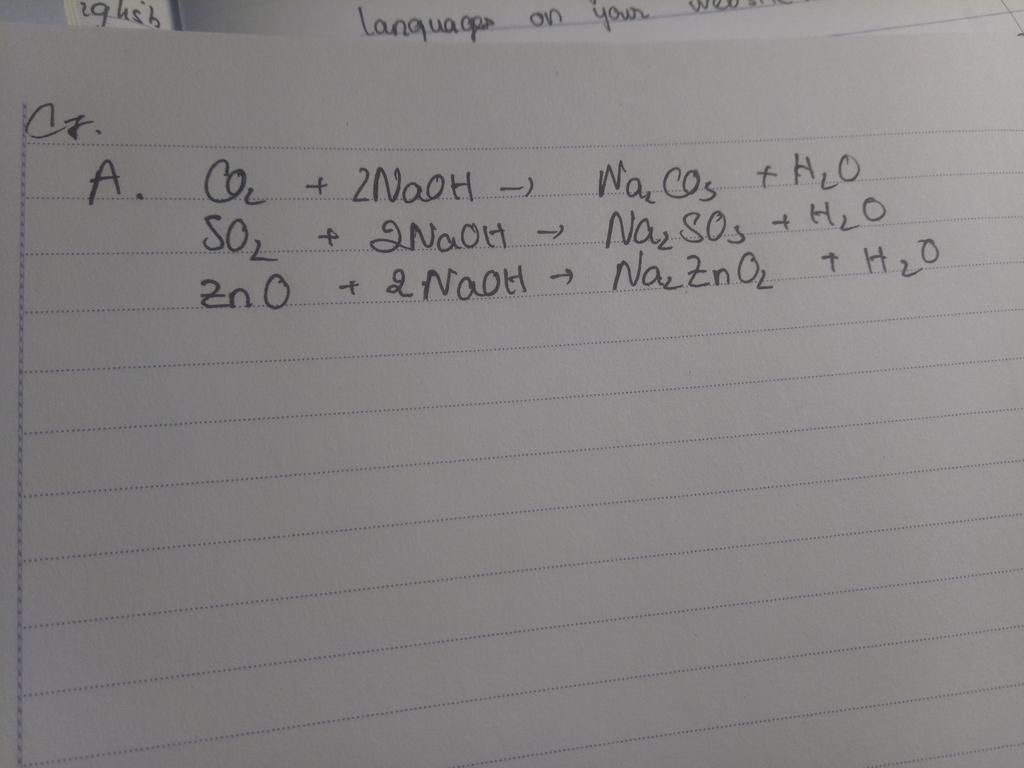 languages on your website
C7.
A. CO₂ + 2NaOH → Na₂CO₃ + H₂O
SO₂ + 2NaOH → Na₂SO₃ + H₂O
ZnO + 2NaOH → Na₂ZnO₂ + H₂O